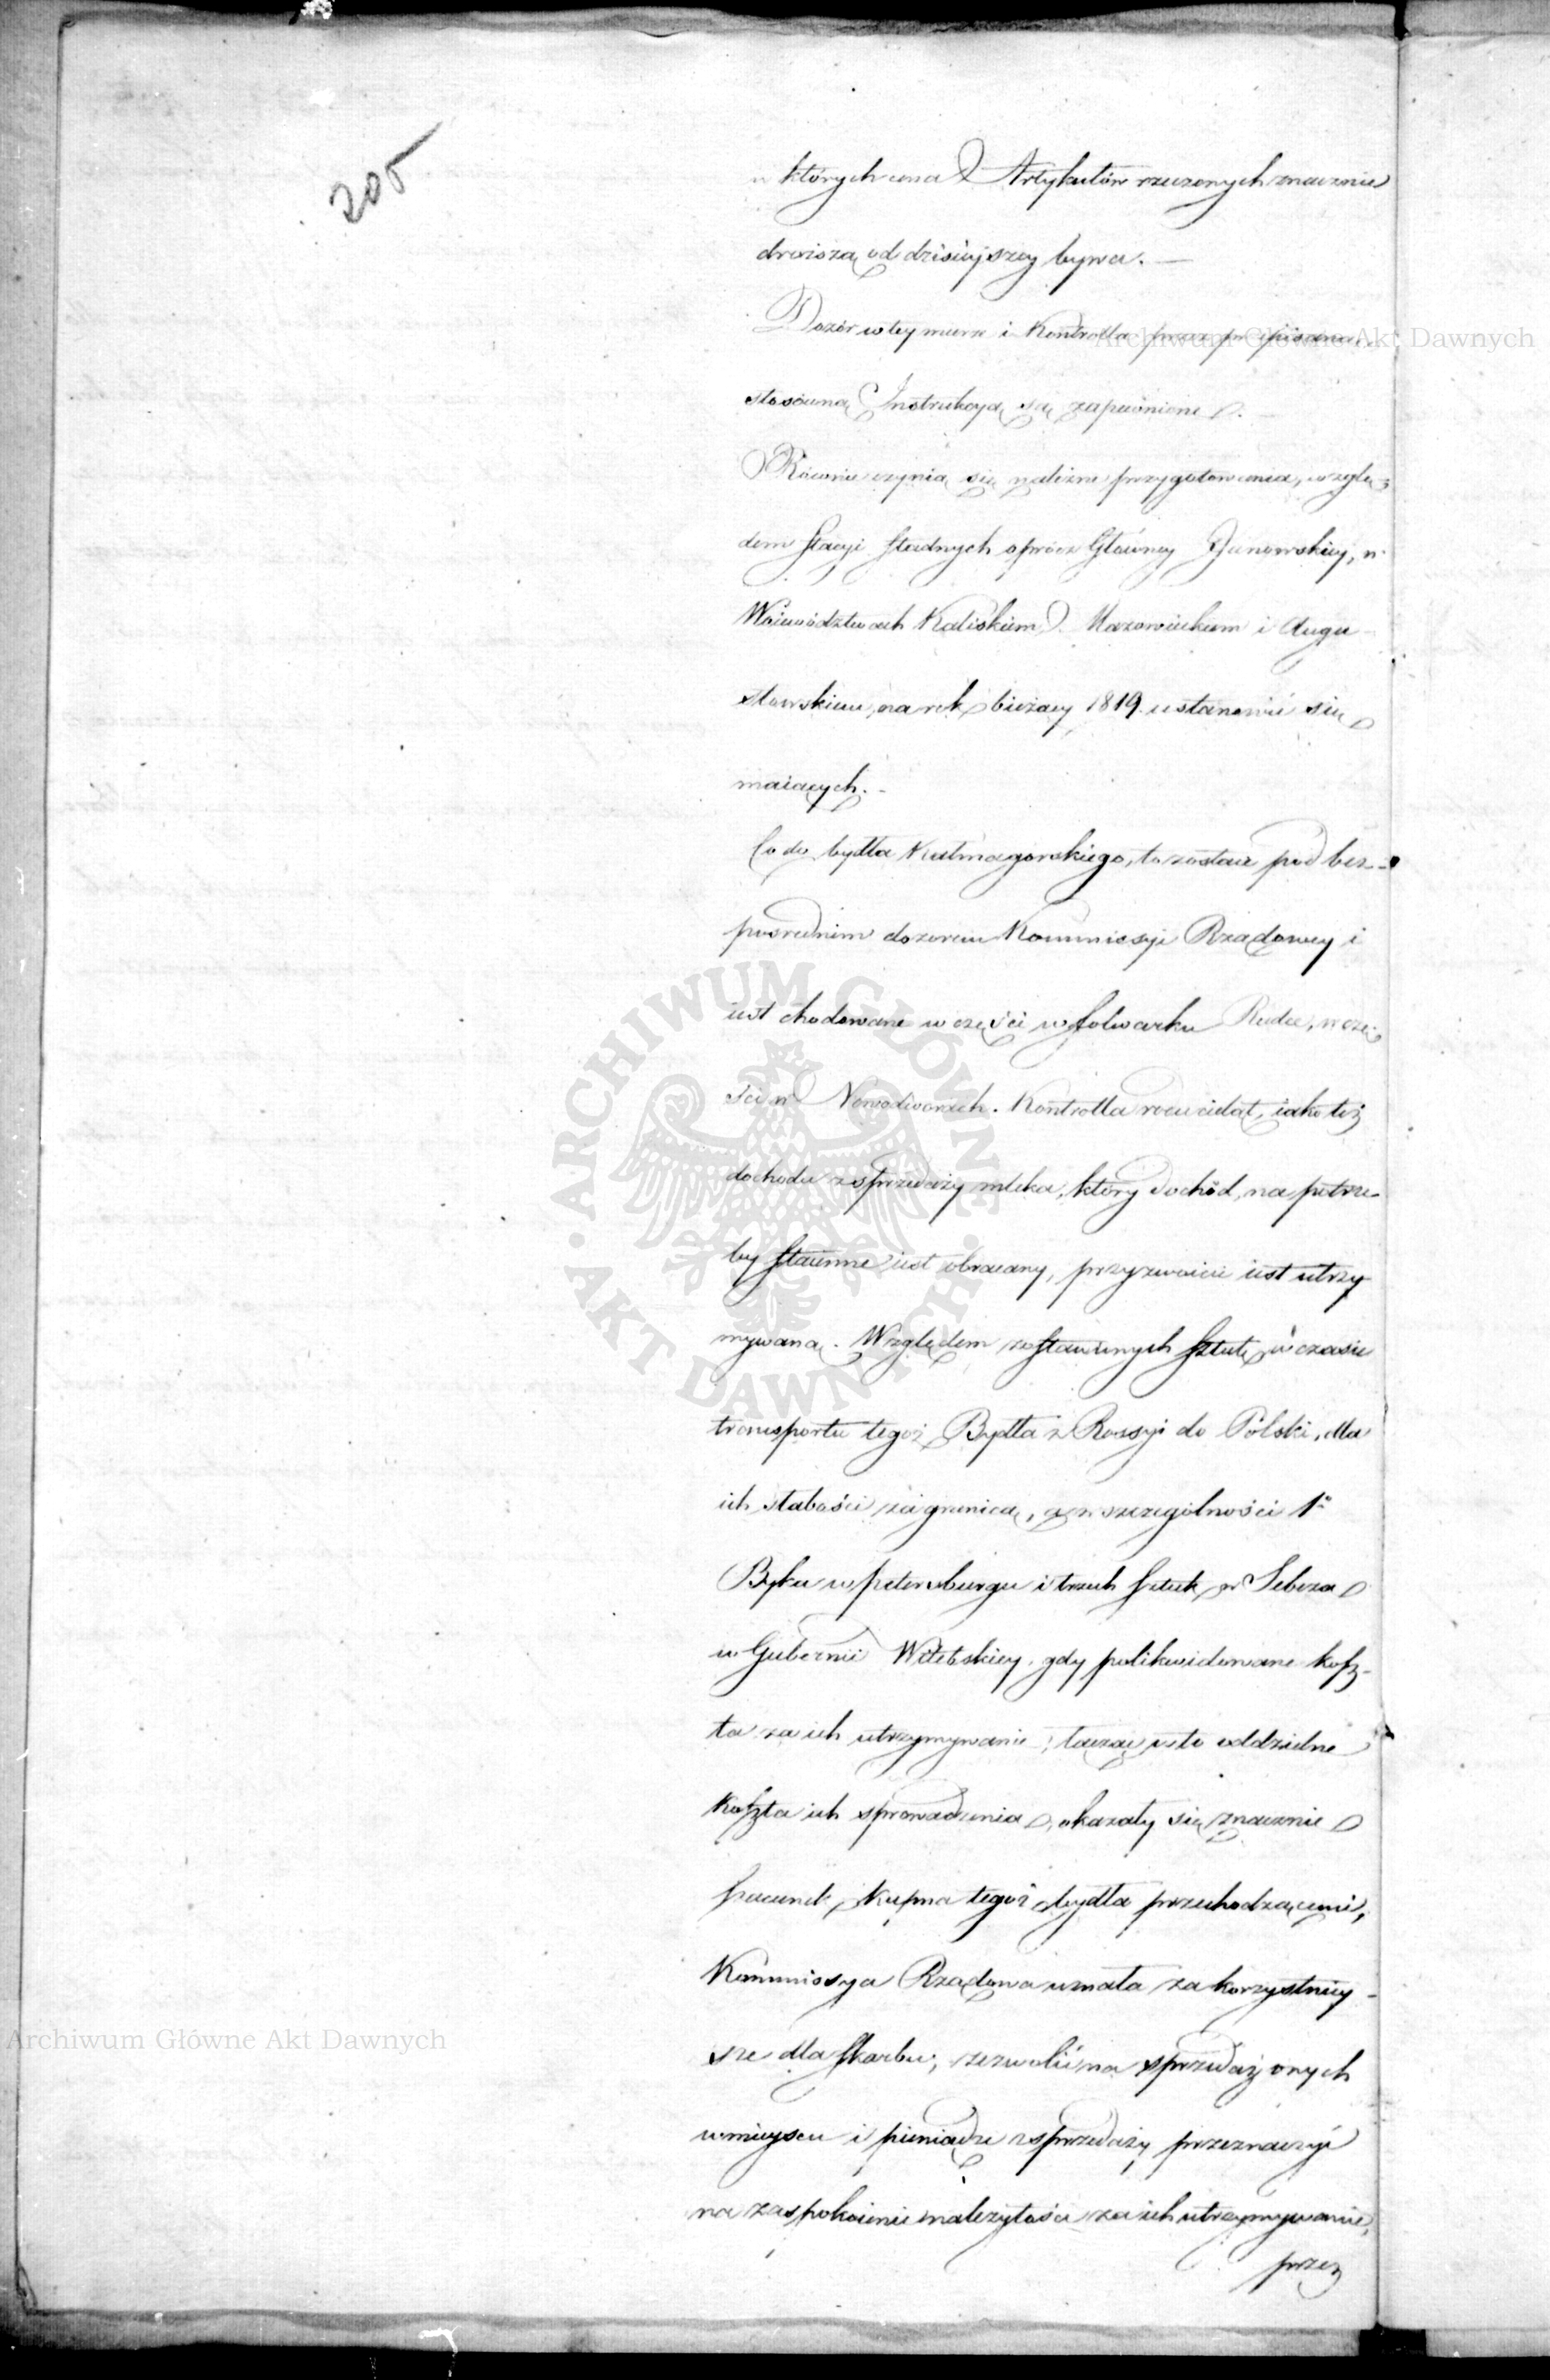 205
w których cena Artykułów rzeczonych znacznie
droższą od dzisiejszey bywa. —
Dozór w tey mierze i Kontrolla przez przepisaną
stosowną Instrukcyą są zapewnione.
Równie czynią się należne przygotowania, wzglę-
dem Stacyi stadnych oprócz Główney Janowskiey, w
Woiewództwach Kaliskiem, Mazowieckiem i Augu-
stowskiem, na rok bieżący 1819. ustanowić się
maiących. -
Co do bydła Kałmagorskiego, to zostaie pod bez-
pośrednim dozorem Kommissyi Rządowey i
iest chodowane w części w folwarku Ruda, w czę-
ści w Nowodworach. Kontrolla rocu cieląt, iako też
dochodu z sprzedaży mleka, który dochód, na potrze-
by stajenne iest obracany, przyzwoicie iest utrzy-
mywaną. Względem zostawionych sztuk w czasie
transportu tegoż Bydła z Rossyi do Polski, dla
ich słabości za granicą, a w szczególności 1°
Byka w petersburgu i trzech sztuk w Sebeza
w Gubernii Witebskiey, gdy polikwidowane kosz-
ta za ich utrzymywanie, łącząc w to oddzielne
koszta ich sprowadzenia, okazały się znacznie
szacunek kupna tegoż bydła przechodzącemi,
Kommissya Rządowa uznała za korzystniey-
sze dla skarbu, zezwolić na sprzedaż onych
w mieyscu i pieniądze z sprzedaży przeznaczyć
na zaspokoienie należytości za ich utrzymywanie,
przez
Archiwum Główne Akt Dawnych
ARCHIWUM GŁÓWNE • AKT DAWNYCH •
Archiwum Główne Akt Dawnych